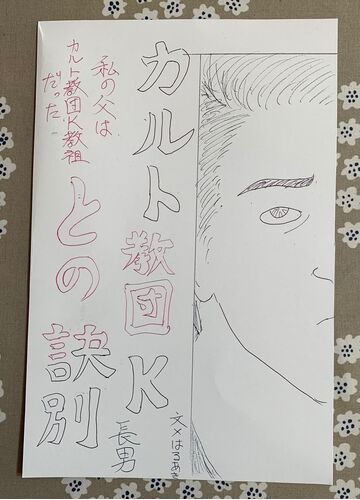 カルト教団K
との訣別
私の父は
カルト教団K教祖
だった…
長男
文×はるあき